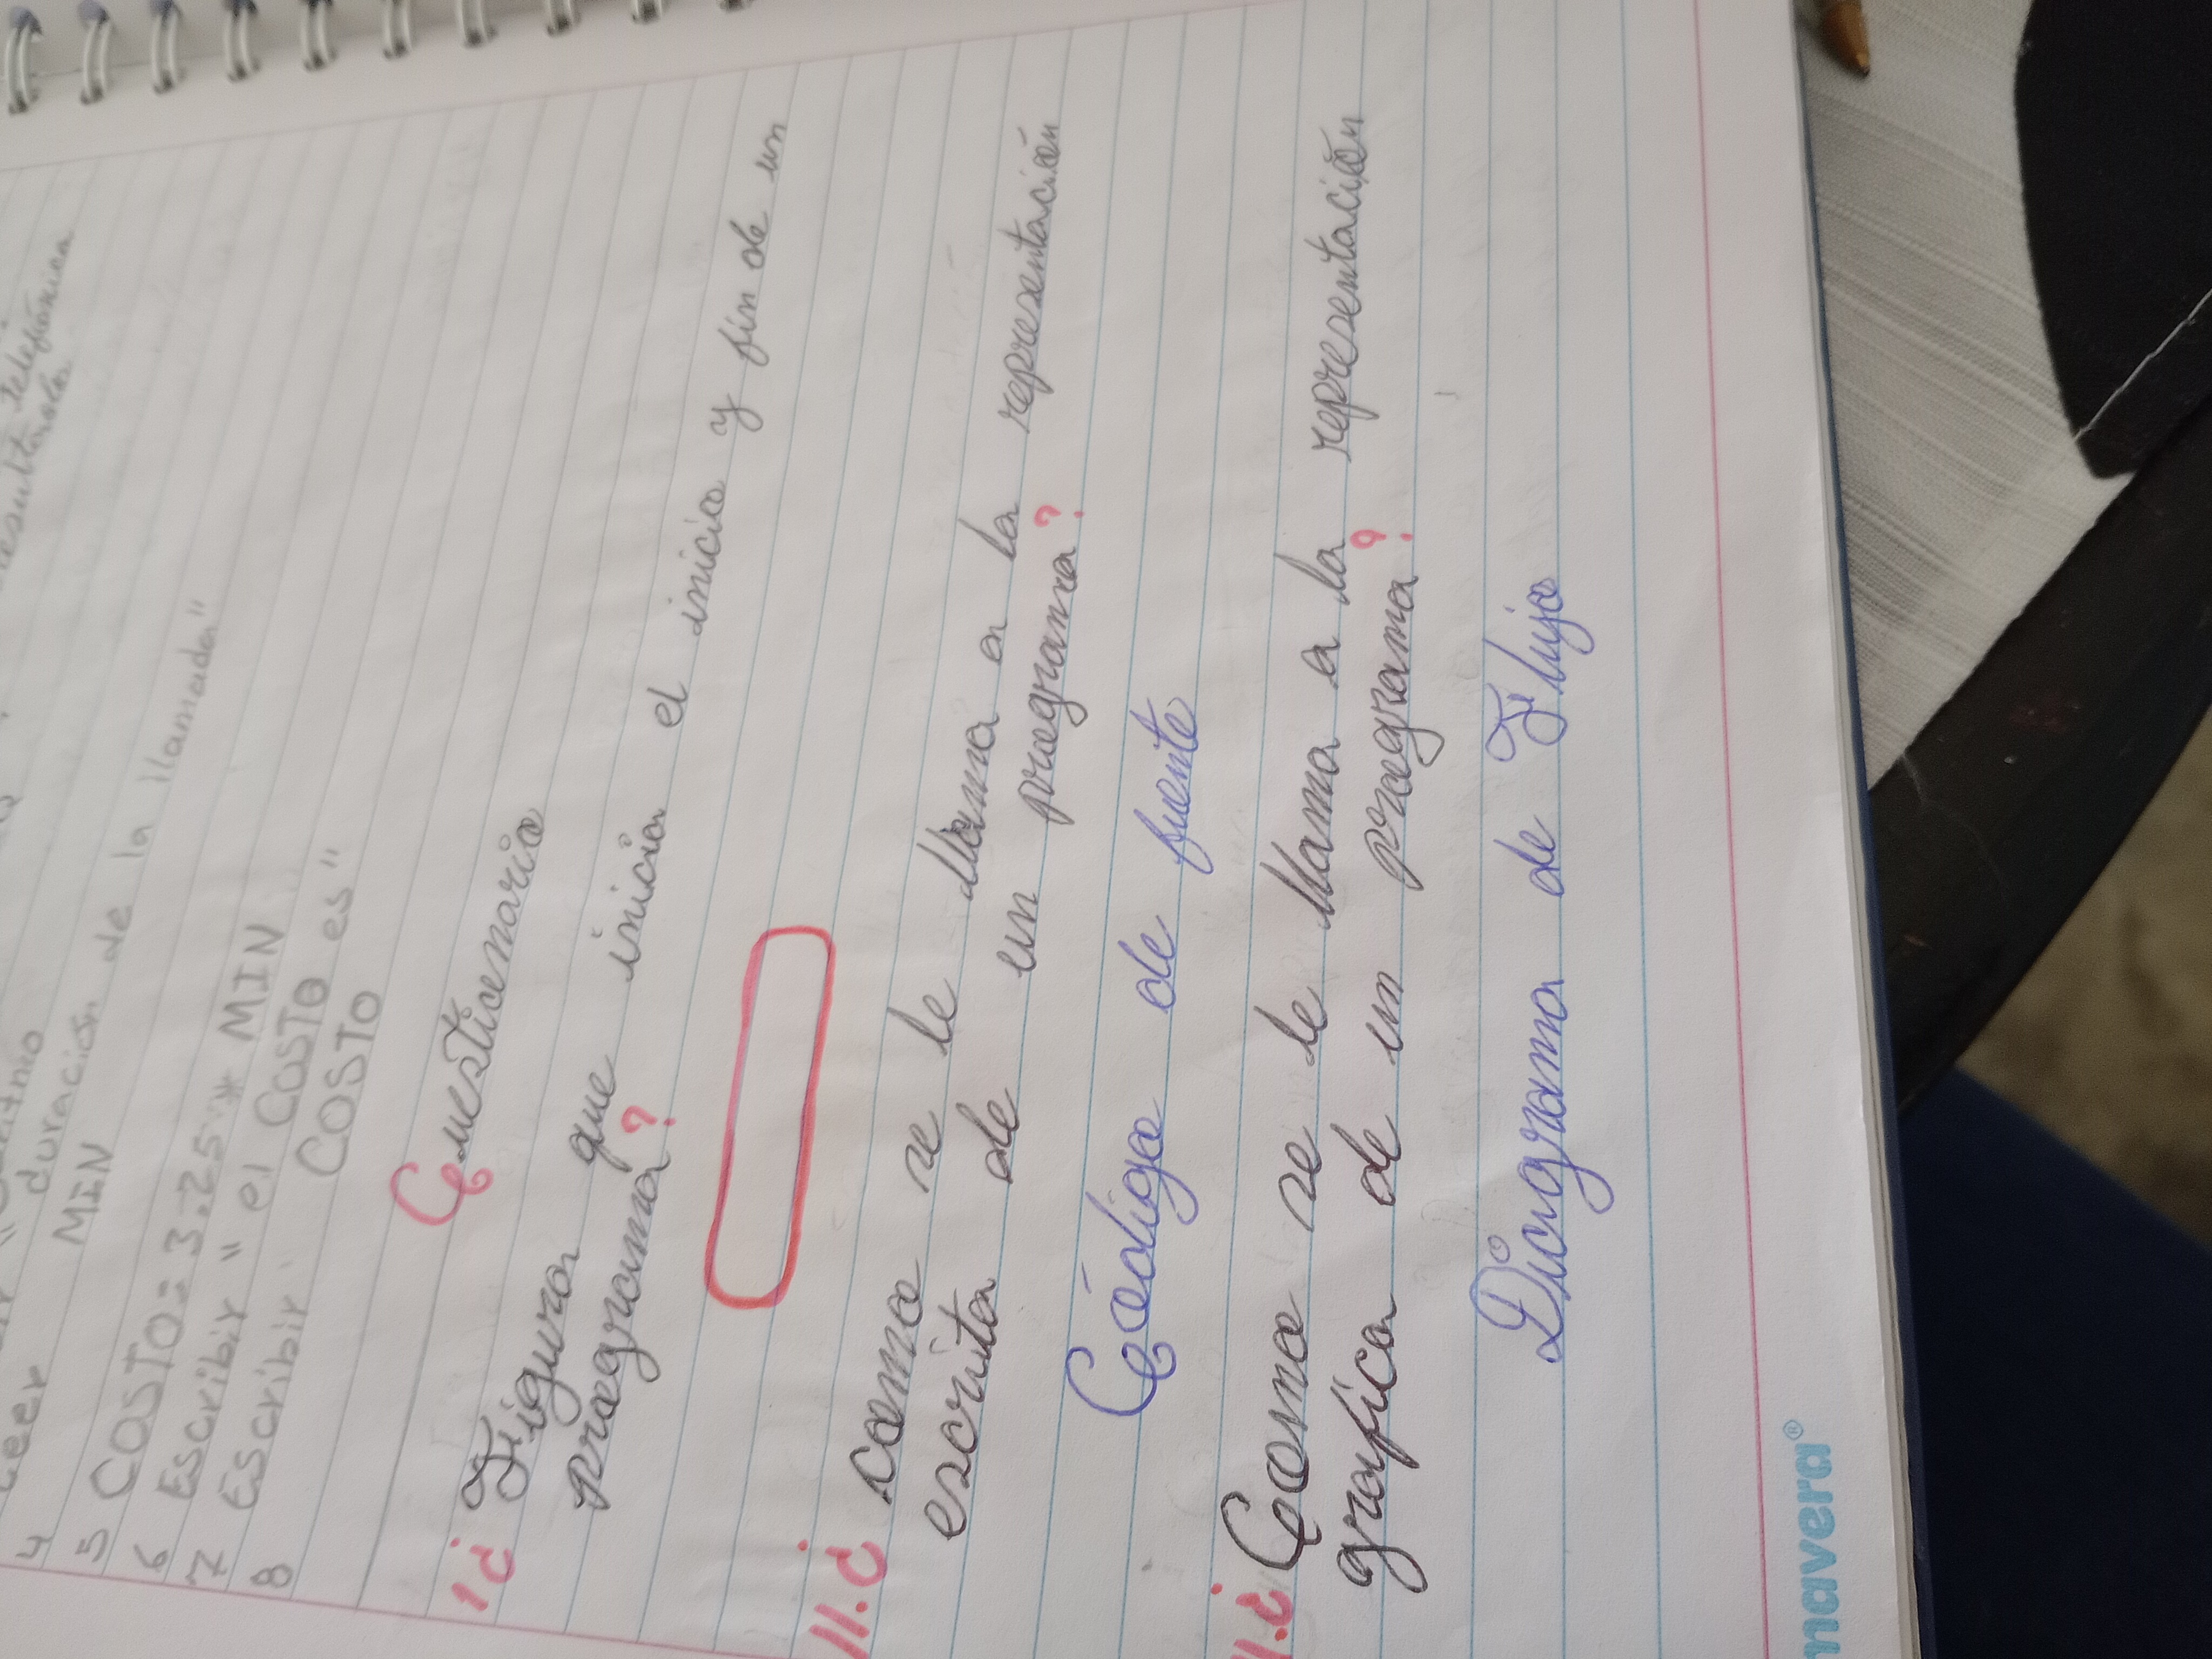 resultando Telefónica
Leer
duración de la llamada"
4 MIN
5 COSTO = 3.25 * MIN
6 Escribir " el COSTO es"
7 Escribir COSTO
8
Cuestionario
1 ¿ Figura que inicia el inicio y fin de un
programa?
11.¿ como se le llama a la representación
escrita de un programa?
Código de fuente
11.¿ Como se le llama a la representación
grafica de un programa?
Diagrama de Flujo
navera®